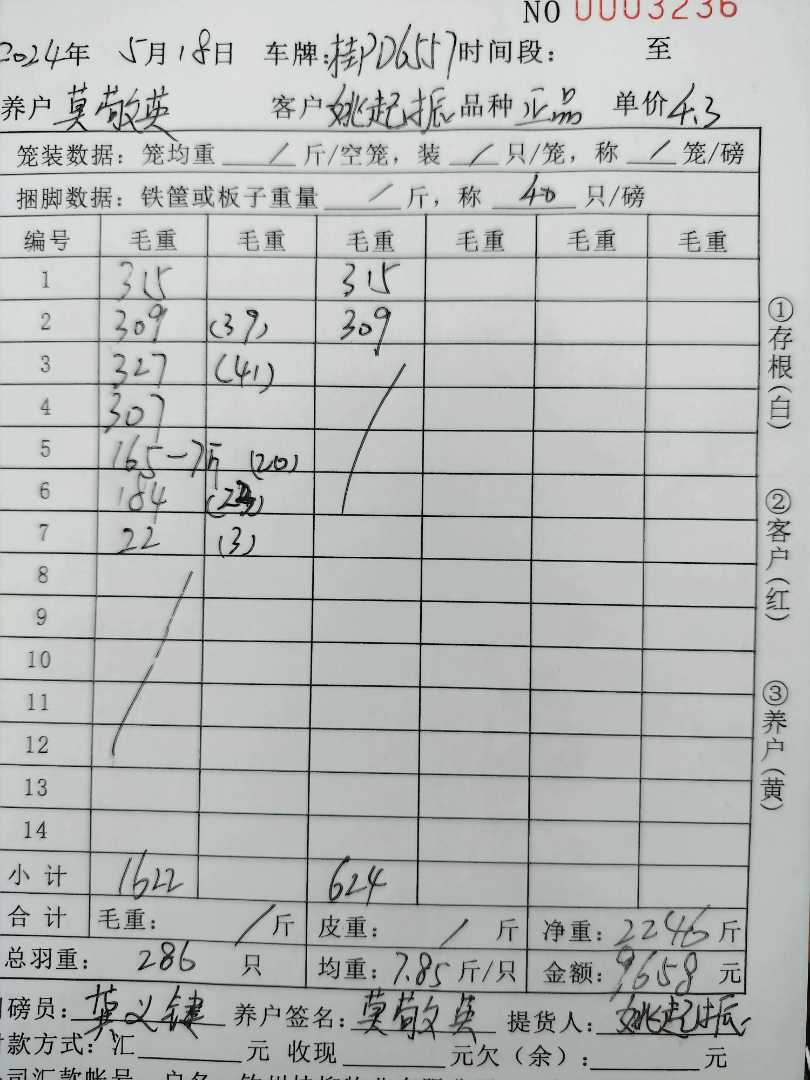 NO 0003236
2024年 5月18日 车牌:桂PD6557 时间段: 至
养户 莫敬英 客户 姚起振 品种 正品 单价 4.3
笼装数据: 笼均重 / 斤/空笼, 装 / 只/笼, 称 / 笼/磅
捆脚数据: 铁筐或板子重量 / 斤, 称 40 只/磅
编号 毛重 毛重 毛重 毛重 毛重 毛重
1 315 315
2 309 (39) 309
3 327 (41)
4 307
5 165-7斤 (20)
6 184
7 22 (3)
8
9
10
11
12
13
14
小计 1622 624
合计 毛重: / 斤 皮重: / 斤 净重: 2246 斤
总羽重: 286 只 均重: 7.85 斤/只 金额: 9658 元
磅员: 莫义键 养户签名: 莫敬英 提货人: 姚起振
款方式: 汇 元 收现 元欠(余): 元
①存根(白)
②客户(红)
③养户(黄)